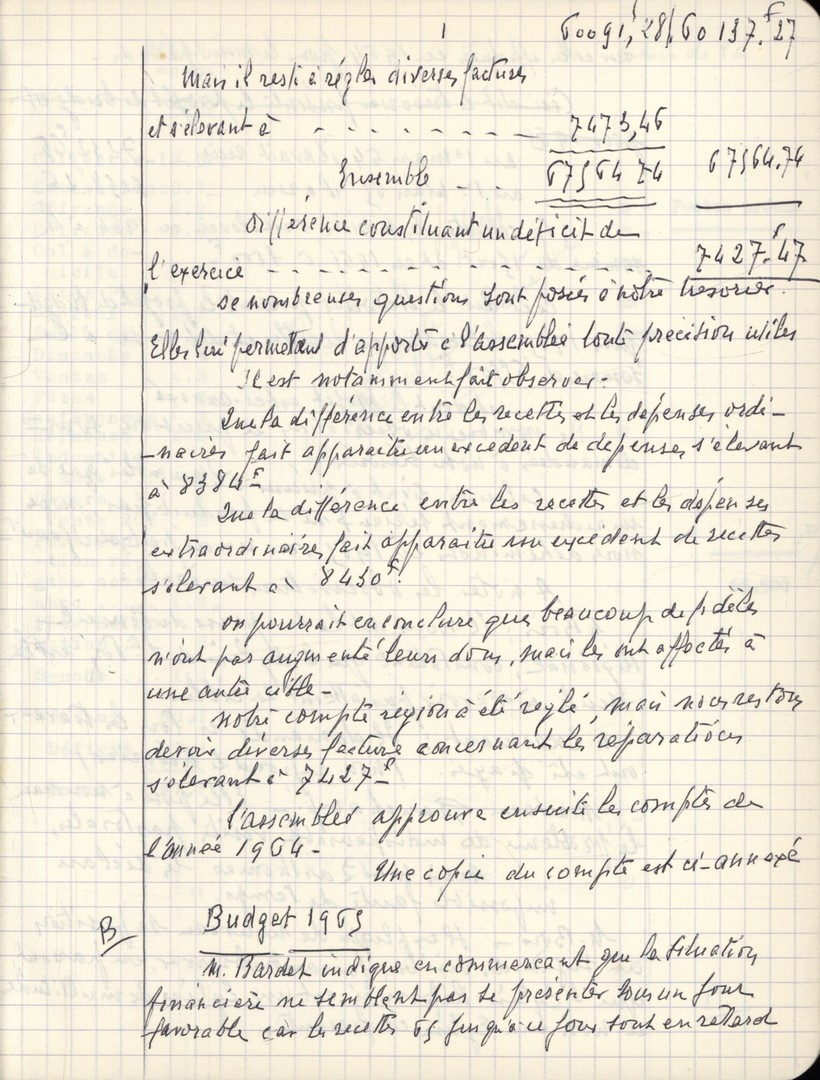 60091,28 60137.F27
Mais il reste à régler diverses factures
et s'élevant à - - - - - - - 7473,46
Ensemble - - 67564 74 67564.74
Différence constituant un déficit de
l'exercice - - - - - - - - - - - 7427.F47
De nombreuses questions sont posées à notre trésorier.
Elles lui permettent d'apporté à l'assemblée toute précision utiles
Il est notamment fait observer.
Que la différence entre les recettes et les dépenses ordi-
-naires fait apparaitre un excédent de dépenses s'élevant
à 8384F
Que la différence entre les recettes et les dépenses
extraordinaires fait apparaitre un excédent de recettes
s'élevant à 8430F.
On pourrait en conclure que beaucoup de fidèles
n'ont pas augmenté leurs dons, mais les ont affectés à
une autre cible-
Notre compte région a été réglé, mais nous restons
devoir diverses facture concernant les réparations
s'élevant à 7427F
L'assemblée approuve ensuite les comptes de
l'année 1964-
Une copie du compte est ci-annexé
B Budget 1965
M. Bardet indique en commencant que la situation
financière ne semblent pas se présenter sous un jour
favorable car les recettes 65 jusqu'à ce jour sont en retard